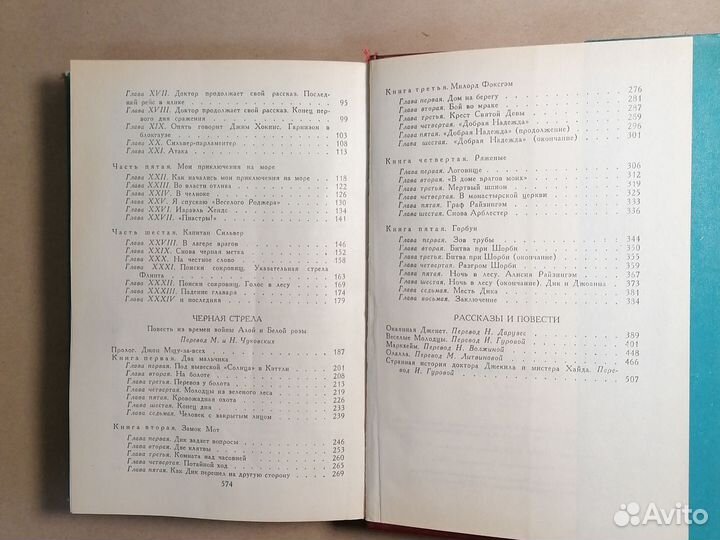 Глава XVII. Доктор продолжает свой рассказ. Послед-
ний рейс в ялике . . . 95
Глава XVIII. Доктор продолжает свой рассказ. Конец пер-
вого дня сражения . . . 99
Глава XIX. Опять говорит Джим Хокинс. Гарнизон в
блокгаузе . . . 103
Глава XX. Сильвер-парламентер . . . 108
Глава XXI. Атака . . . 113
Часть пятая. Мои приключения на море
Глава XXII. Как начались мои приключения на море . . . 118
Глава XXIII. Во власти отлива . . . 122
Глава XXIV. В челноке . . . 126
Глава XXV. Я спускаю «Веселого Роджера» . . . 130
Глава XXVI. Израэль Хендс . . . 134
Глава XXVII. «Пиастры!» . . . 141
Часть шестая. Капитан Сильвер
Глава XXVIII. В лагере врагов . . . 146
Глава XXIX. Снова черная метка . . . 152
Глава XXX. На честное слово . . . 158
Глава XXXI. Поиски сокровищ. Указательная стрела
Флинта . . . 163
Глава XXXII. Поиски сокровищ. Голос в лесу . . . 169
Глава XXXIII. Падение главаря . . . 175
Глава XXXIV и последняя . . . 179
ЧЕРНАЯ СТРЕЛА
Повесть из времен войны Алой и Белой розы
Перевод М. и Н. Чуковских
Пролог. Джон Мщу-за-всех . . . 187
Книга первая. Два мальчика
Глава первая. Под вывеской «Солнца» в Кэттли . . . 201
Глава вторая. На болоте . . . 208
Глава третья. Перевоз у болота . . . 213
Глава четвертая. Молодцы из зеленого леса . . . 219
Глава пятая. Кровожадная охота . . . 226
Глава шестая. Конец дня . . . 233
Глава седьмая. Человек с закрытым лицом . . . 239
Книга вторая. Замок Мот
Глава первая. Дик задает вопросы . . . 246
Глава вторая. Две клятвы . . . 253
Глава третья. Комната над часовней . . . 260
Глава четвертая. Потайной ход . . . 265
Глава пятая. Как Дик перешел на другую сторону . . . 269
574
Книга третья. Милорд Фоксгэм
Глава первая. Дом на берегу . . . 276
Глава вторая. Бой во мраке . . . 281
Глава третья. Крест Святой Девы . . . 287
Глава четвертая. «Добрая Надежда» . . . 289
Глава пятая. «Добрая Надежда» (продолжение) . . . 296
Глава шестая. «Добрая Надежда» (окончание) . . . 301
Книга четвертая. Ряженые
Глава первая. Логовище . . . 306
Глава вторая. «В доме врагов моих» . . . 312
Глава третья. Мертвый шпион . . . 319
Глава четвертая. В монастырской церкви . . . 325
Глава пятая. Граф Райзингэм . . . 333
Глава шестая. Снова Арблестер . . . 336
Книга пятая. Горбун
Глава первая. Зов трубы . . . 344
Глава вторая. Битва при Шорби . . . 350
Глава третья. Битва при Шорби (окончание) . . . 355
Глава четвертая. Разгром Шорби . . . 360
Глава пятая. Ночь в лесу. Алисия Райзингэм . . . 367
Глава шестая. Ночь в лесу (окончание). Дик и Джоанна . . . 373
Глава седьмая. Месть Дика . . . 381
Глава восьмая. Заключение . . . 384
РАССКАЗЫ И ПОВЕСТИ
Окаянная Дженет. Перевод Н. Дарузес . . . 389
Веселые Молодцы. Перевод И. Гуровой . . . 401
Маркхейм. Перевод Н. Волжиной . . . 448
Олалла. Перевод М. Литвиновой . . . 466
Странная история доктора Джекила и мистера Хайда. Пере-
вод И. Гуровой . . . 507
Avito